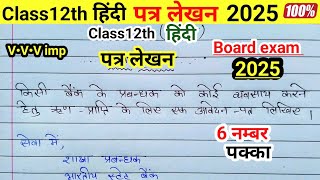 Class12th हिंदी पत्र लेखन 2025 100%
Class12th (हिंदी)
V•V•V imp
पत्र लेखन
Board exam
2025
किसी बैंक के प्रबन्धक को कोई व्यवसाय करने
हेतु ऋण-प्राप्ति के लिए एक आवेदन-पत्र लिखिए।
6 नम्बर
पक्का
सेवा में,
शाखा प्रबन्धक
भारतीय स्टेट बैंक